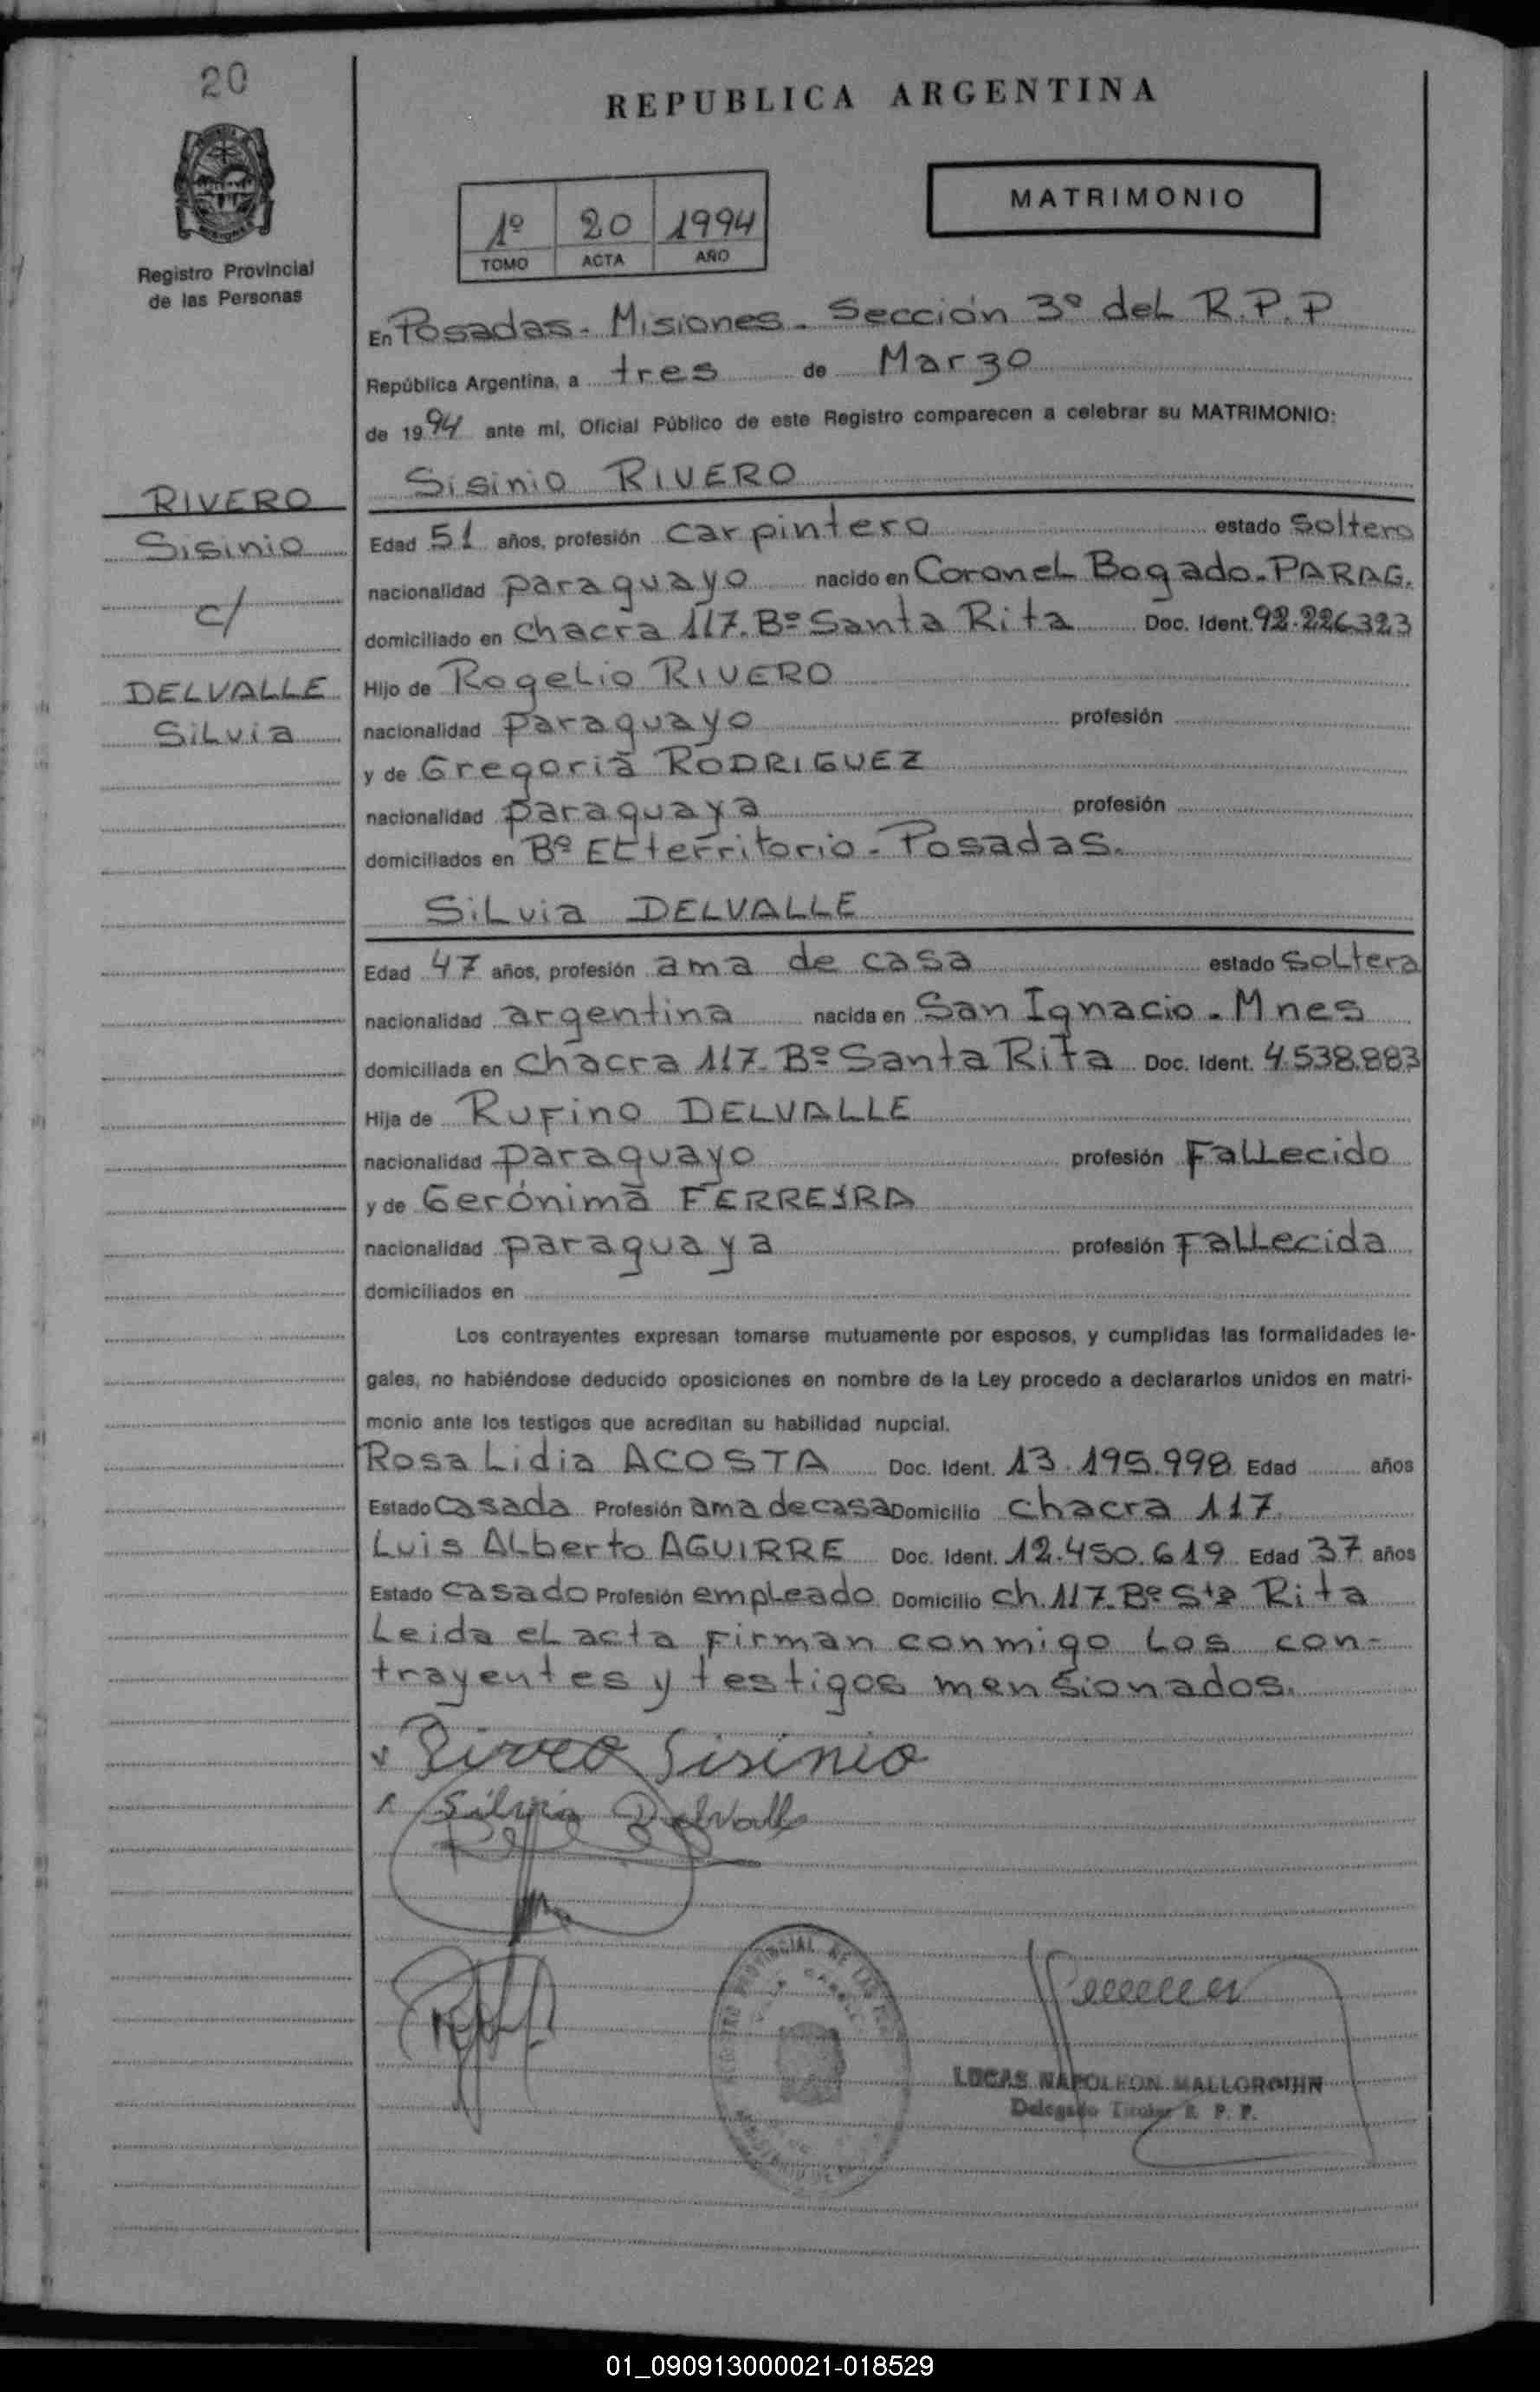 20
REPUBLICA ARGENTINA
MATRIMONIO
1º 20 1994
TOMO ACTA AÑO
Registro Provincial
de las Personas
En Posadas - Misiones - Sección 3º del R.P.P
República Argentina, a tres de Marzo
de 1994 ante mi, Oficial Público de este Registro comparecen a celebrar su MATRIMONIO:
Sisinio RIVERO
RIVERO
Sisinio
c/
DELVALLE
Silvia
Edad 51 años, profesión carpintero estado Soltero
nacionalidad paraguayo nacido en Coronel Bogado-PARAG.
domiciliado en chacra 117. Bº Santa Rita Doc. Ident. 92.226323
Hijo de Rogelio RIVERO
nacionalidad paraguayo profesión
y de Gregoria RODRIGUEZ
nacionalidad paraguaya profesión
domiciliados en Bº El territorio - Posadas.
Silvia DELVALLE
Edad 47 años, profesión ama de casa estado Soltera
nacionalidad argentina nacida en San Ignacio - Mnes
domiciliada en chacra 117. Bº Santa Rita Doc. Ident. 4.538.883
Hija de Rufino DELVALLE
nacionalidad paraguayo profesión Fallecido
y de Gerónima FERREYRA
nacionalidad paraguaya profesión Fallecida
domiciliados en
Los contrayentes expresan tomarse mutuamente por esposos, y cumplidas las formalidades le-
gales, no habiéndose deducido oposiciones en nombre de la Ley procedo a declararlos unidos en matri-
monio ante los testigos que acreditan su habilidad nupcial.
Rosa Lidia ACOSTA Doc. Ident. 13.195.998 Edad años
Estado Casada Profesión ama de casa Domicilio chacra 117
Luis Alberto AGUIRRE Doc. Ident. 12.450.619 Edad 37 años
Estado casado Profesión empleado Domicilio ch. 117. Bº Sta Rita
Leida el acta firman conmigo los con-
trayentes y testigos mensionados.
Rivero Sisinio
Silvia Delvalle
LUCAS NAPOLEON MALLORQUIN
Delegado Titular R. P. P.
01_090913000021-018529